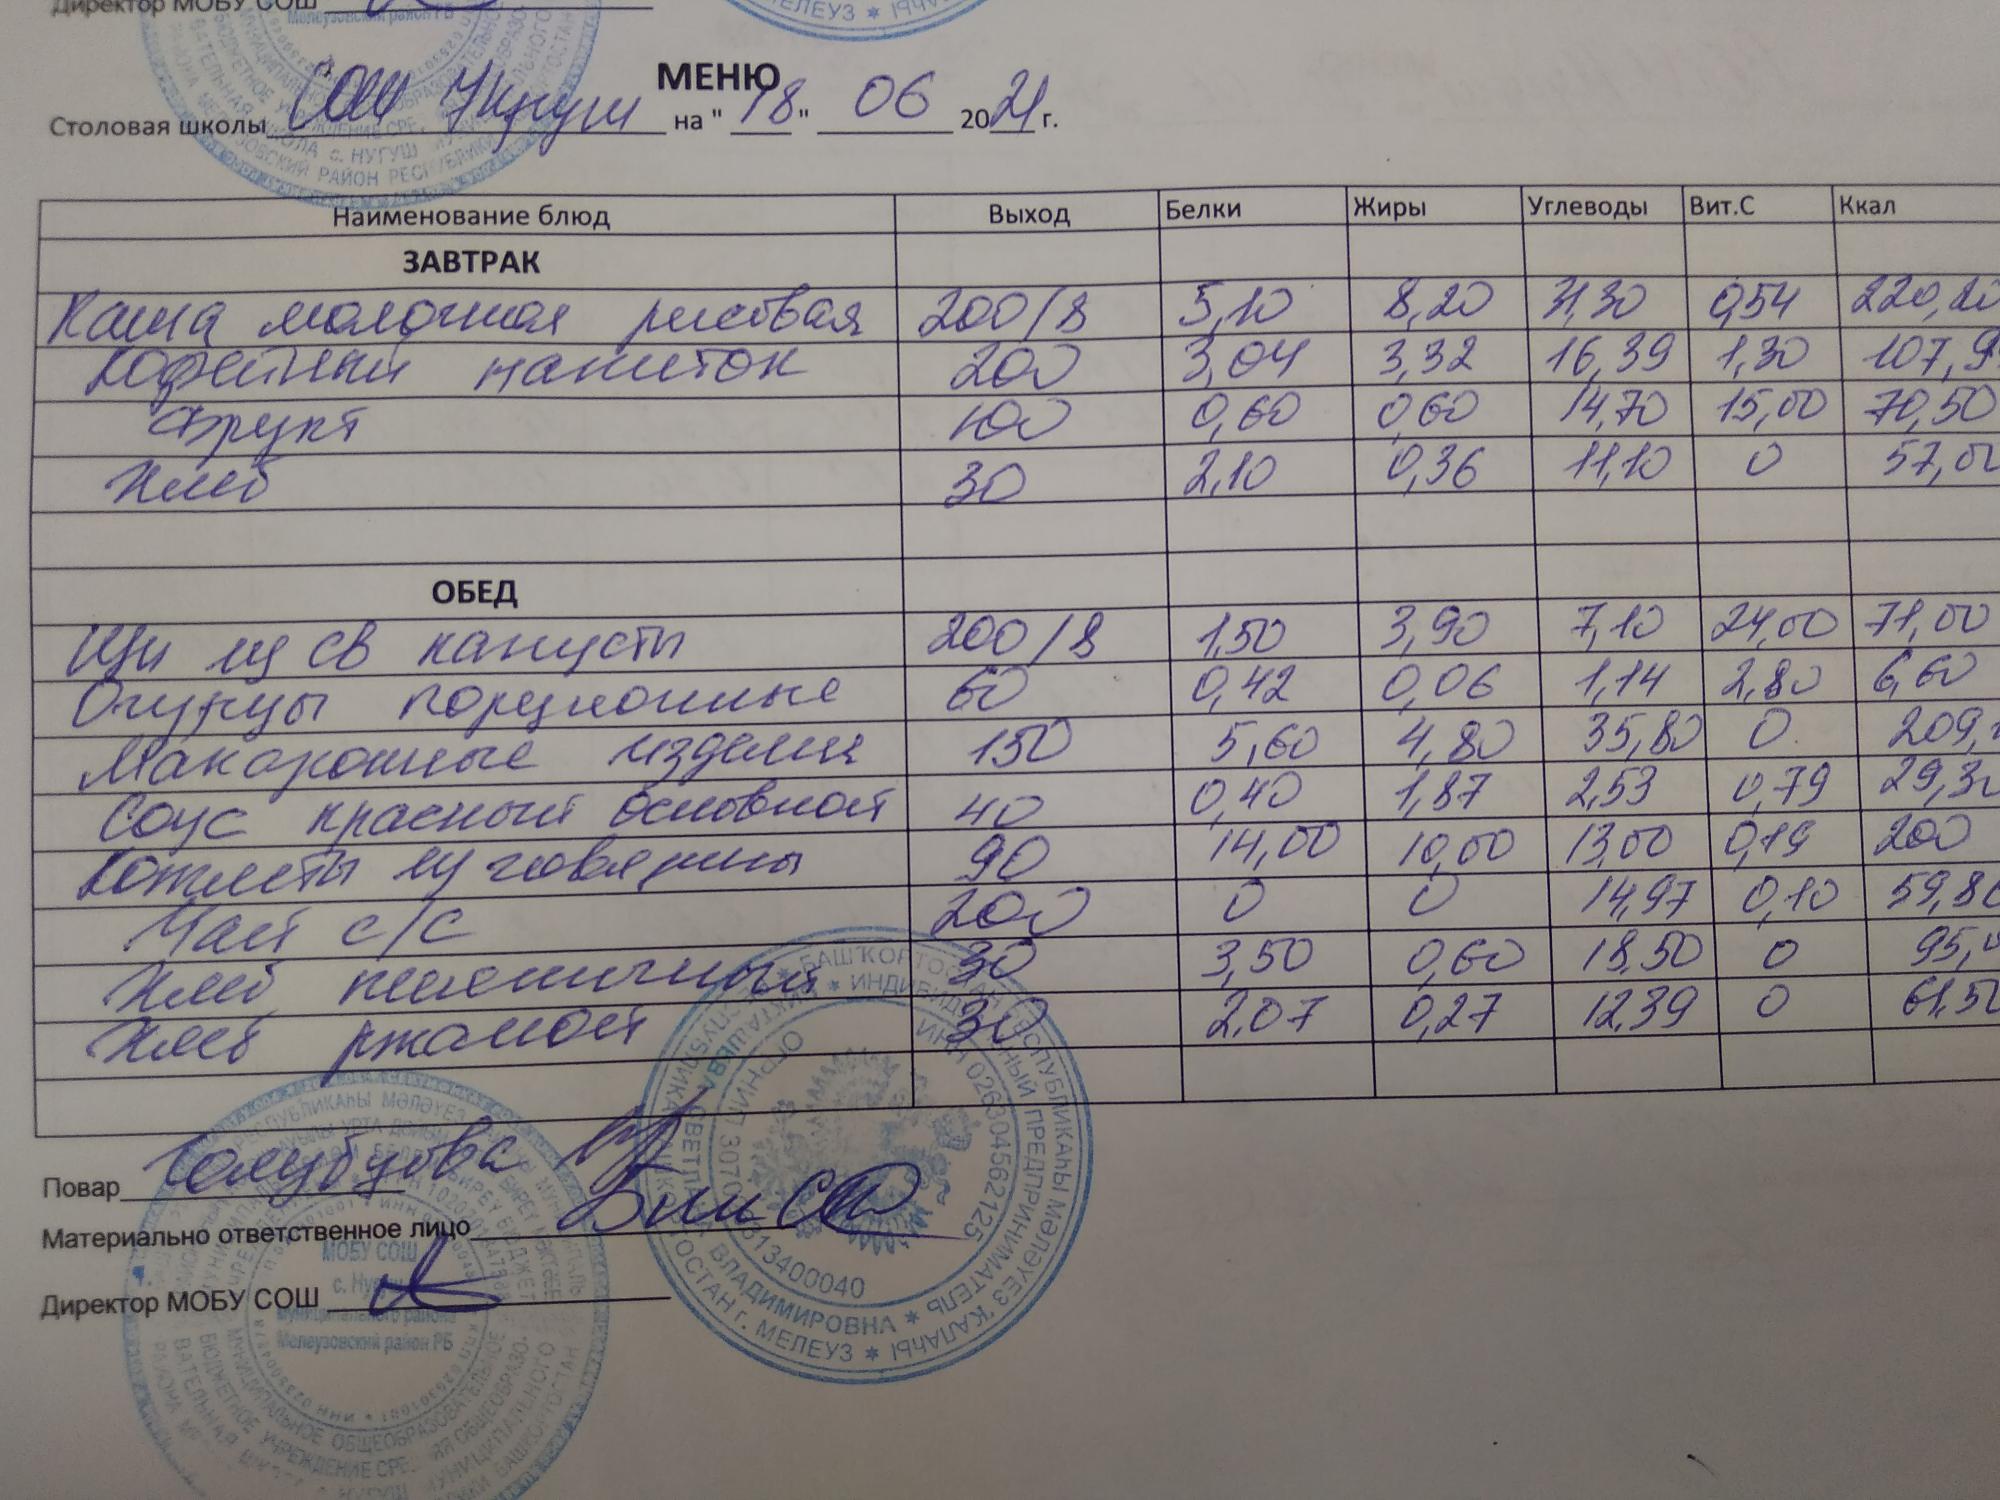 Директор МОБУ СОШ
Мелеузовский район РБ
МЕНЮ
Столовая школы СОШ Нугуш на " 18 " 06 2021 г.
Наименование блюд Выход Белки Жиры Углеводы Вит.С Ккал
ЗАВТРАК
Каша молочная рисовая 200/8 5,10 8,20 31,30 0,54 220,20
Кофейный напиток 200 3,04 3,32 16,39 1,30 107,9
Фрукт 100 0,60 0,60 14,70 15,00 70,50
Хлеб 30 2,10 0,36 11,10 0 57,00
ОБЕД
Щи из св капусты 200/8 1,50 3,90 7,10 24,00 71,00
Огурцы порционные 60 0,42 0,06 1,14 2,80 6,60
Макаронные изделия 150 5,60 4,80 35,80 0 209,
Соус красный основной 40 0,40 1,87 2,53 0,79 29,30
Котлеты из говядины 90 14,00 10,00 13,00 0,19 200
Чай с/с 200 0 0 14,97 0,10 59,80
Хлеб пшеничный 30 3,50 0,60 18,50 0 95,0
Хлеб ржаной 30 2,07 0,27 12,39 0 61,50
Повар
Материально ответственное лицо
Директор МОБУ СОШ
МОБУ СОШ
с. Нугуш
Муниципального района
Мелеузовский район РБ
ИНДИВИДУАЛЬНЫЙ ПРЕДПРИНИМАТЕЛЬ
СВЕТЛАНА ВЛАДИМИРОВНА
ИНН 026304562125